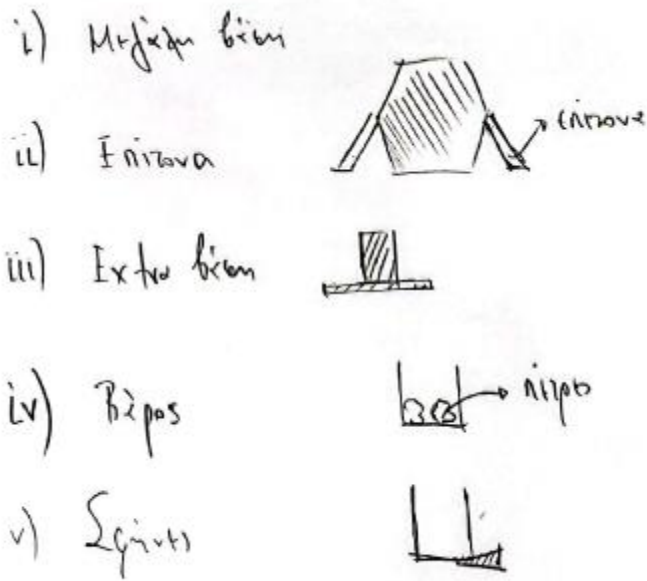 i) Μεγάλη βάση
ii) Επίτονα
επίτονα
iii) Extra βάση
iv) Βάρος
πέτρα
v) Σφήνες